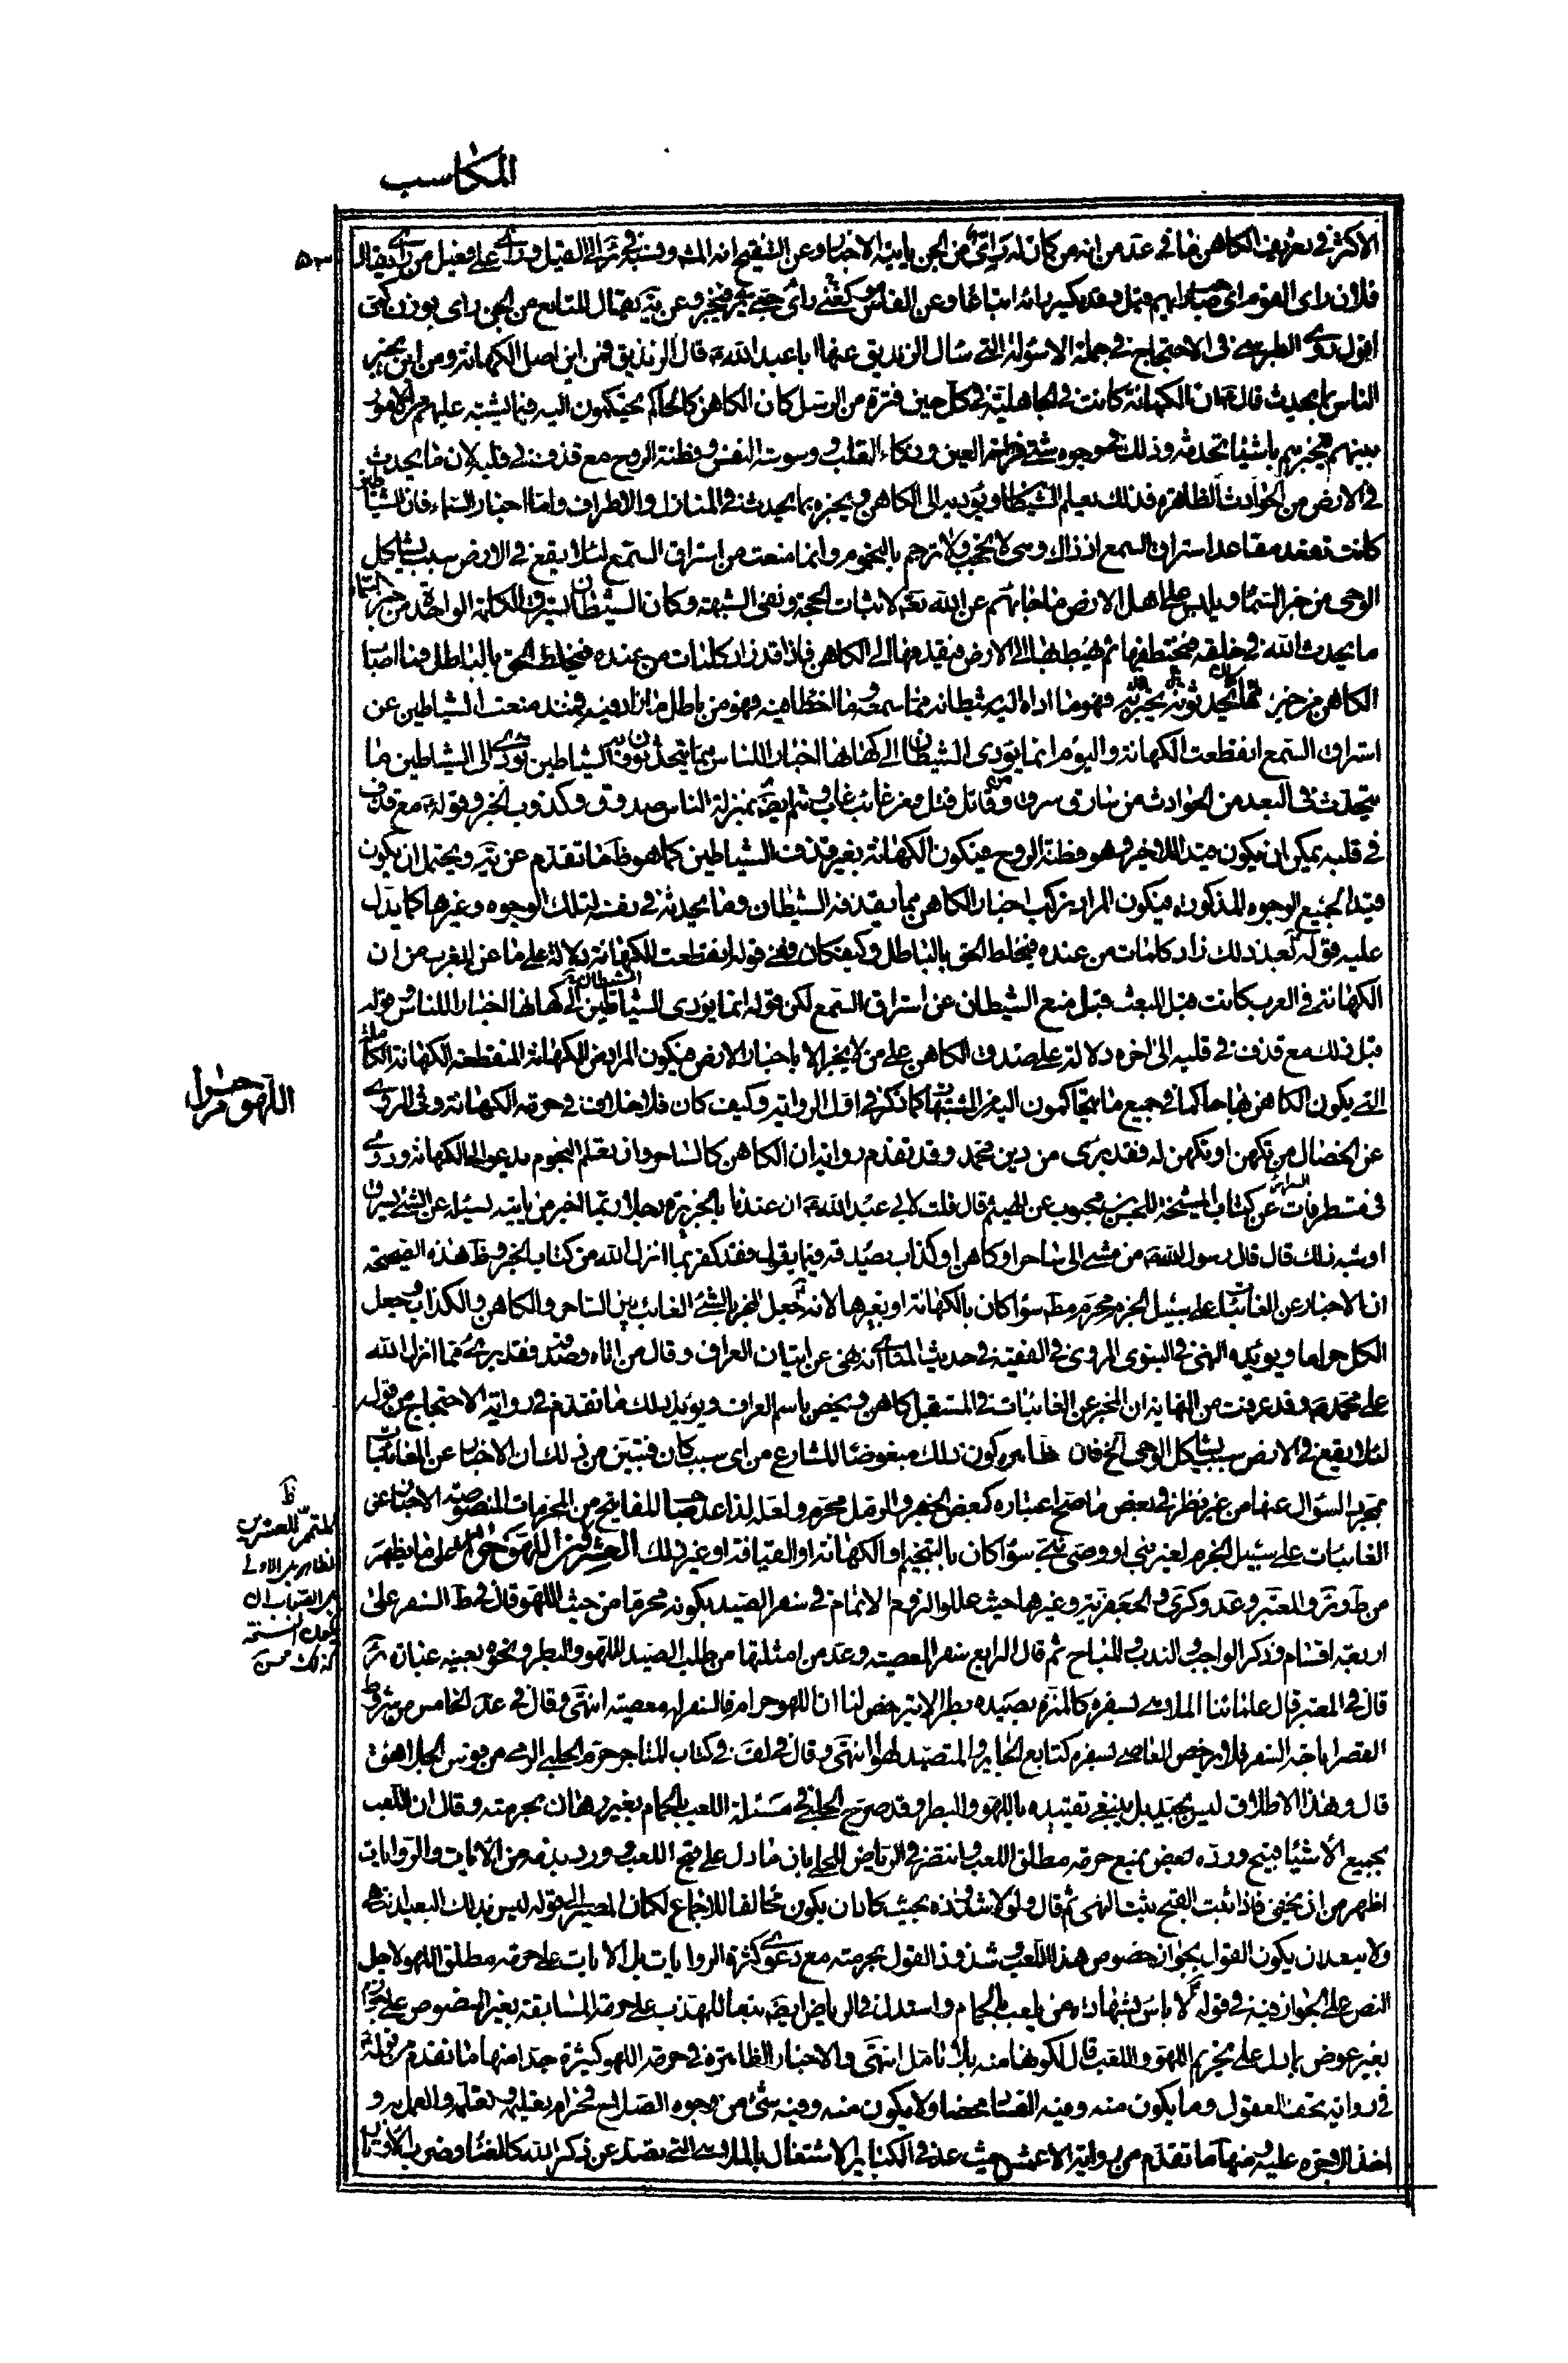 المكاسب
٥٣
الاكثر في تعريف الكاهن ما في عد من انه من كان له رأي من الجن يأتيه الاخبار وعن التنقيح انه المشهور ونسبه في الى القيل
فلان رأى القوم اى صاحب رأيهم قيل وقد يكسر رائه اتباعا وعن القاموس
اقول روى الطبرسي في الاحتجاج في جملة الاسولة التي سئل الزنديق عنها ابا عبد الله قال الزنديق فمن اين اصل الكهانة ومن اين يخبر
الناس بما يحدث قال ان الكهانة كانت في الجاهلية في كل حين فترة من الرسل كان الكاهن كالحاكم يحتكمون اليه فيما يشتبه عليهم من الامور
بينهم فيخبرهم باشياء تحدث وذلك في وجوه شتى فراسة العين وذكاء القلب ووسوسة النفس وفطنة الروح مع قذف في قلبه لان ما يحدث
في الارض من الحوادث الظاهرة فذلك يعلم الشيطان ويؤديه الى الكاهن ويخبره بما يحدث في المنازل والاطراف واما اخبار السماء فان الشياطين
كانت تقعد مقاعد استراق السمع اذ ذاك وهي لا تحجب ولا ترجم بالنجوم وانما منعت من استراق السمع لئلا يقع في الارض سبب يشاكل
الوحى من خبر السماء ويلبس على اهل الارض ما جائهم عن الله تعالى لاثبات الحجة ونفى الشبهة وكان الشيطان يسترق الكلمة الواحدة من خبر السماء
ما يحدث الله في خلقه فيختطفها ثم يهبط بها الى الارض فيقذفها الى الكاهن فاذا قد زاد كلمات من عنده فيختلط الحق بالباطل فما اصاب
الكاهن من خبر مما كان يخبر به فهو ما اداه اليه شيطانه مما سمعه وما اخطأ فيه فهو من باطل ما زاد فيه فمنذ منعت الشياطين عن
استراق السمع انقطعت الكهانة واليوم انما يؤدى الشيطان الى كهانها اخبارا للناس بما يتحدثون به والشياطين تؤدى الى الشياطين ما
يحدث في البعد من الحوادث من سارق سرق وقاتل قتل ومن غائب غاب وهم ايضا بمنزلة الناس صدوق وكذوب الخبر وقوله مع قذف
في قلبه يمكن ان يكون قيدا للاخير وهو فطنة الروح فيكون الكهانة بغير قذف الشياطين كما هو ظاهر ما تقدم عن ية ويحتمل ان يكون
قيدا لجميع الوجوه المذكورة فيكون المراد تركب اخبار الكاهن مما يقذفه الشيطان وما يحدث في نفسه لتلك الوجوه وغيرها كما يدل
عليه قوله بعد ذلك زاد كلمات من عنده فيختلط الحق بالباطل وكيف كان ففى قوله انقطعت الكهانة دلالة على ما عن المغرب من ان
الكهانة في العرب كانت قبل البعث قبل منع الشيطان عن استراق السمع لكن قوله انما يؤدى الشياطين الى كهانها اخبارا للناس وقوله
قبل ذلك مع قذف في قلبه الى اخره دلالة على صدق الكاهن على من لا يخبر الا باخبار الارض فيكون المراد من الكهانة المنقطعة الكهانة الكاملة
التي يكون الكاهن بها حاكما في جميع ما يتحاكمون اليه من المشتبهات كما ذكر في اول الرواية وكيف كان فلا خلاف في حرمة الكهانة وفى المروى
عن الخصال من تكهن او تكهن له فقد برئ من دين محمد وقد تقدم رواية ان الكاهن كالساحر وان تعلم النجوم يدعو الى الكهانة وروى
في مستطرفات السرائر عن كتاب المشيخة للحسن بن محبوب عن الهيثم قال قلت لابي عبد الله ان عندنا بالجزيرة رجلا ربما اخبر من يأتيه يسئله عن الشئ يسرق
او شبه ذلك قال قال رسول الله من مشى الى ساحر او كاهن او كذاب يصدقه فيما يقول فقد كفر بما انزل الله من كتاب الخبر وظ هذه الصحيحة
ان الاخبار عن الغائبات على سبيل الجزم محرم مط سواء كان بالكهانة او بغيرها لانه جعل المخبر بالشئ الغائب بين الساحر والكاهن والكذاب وجعل
الكل حراما ويؤيده النهى في النبوى المروى في الفقيه في حديث المناهى انه نهى عن اتيان العراف وقال من اتاه وصدقه فقد برئ مما انزل الله
على محمد وقد عرفت من النهاية ان المخبر عن الغائبات في المستقبل كاهن ويخص باسم العراف ويؤيد ذلك ما تقدم في رواية الاحتجاج من قوله
لئلا يقع في الارض سبب يشاكل الوحى الخ فان ظاهره كون ذلك مبغوضا للشارع من اى سبب كان فتبين من ذلك ان الاخبار عن الغائبات
بمجرد السؤال عنها من غير نظر في بعض ما صح اعتباره كبعض الجفر والرمل محرم ولعله لذا عد صاحب المفاتيح من المحرمات المنصوصة الاخبار عن
الغائبات على سبيل الجزم لغير نبى او وصى نبى سواء كان بالتنجيم او الكهانة او القيافة او غير ذلك العشرون اللهو حرام على ما يظهر
من ط وئر والمعتبر وعد وكرى والجعفرية وغيرها حيث عللوا لزوم الاتمام في سفر الصيد بكونه محرما من حيث اللهو قال في ط السفر على
اربعة اقسام وذكر الواجب والندب والمباح ثم قال الرابع سفر المعصية وعد من امثلتها من طلب الصيد للهو والبطر ونحوه بعينه عبارة ئر
قال في المعتبر قال علمائنا اللاهى بسفره كالمتنزه بصيده بطرا لا يترخص لنا ان اللهو حرام فالسفر له معصية انتهى وقال في عد الخامس من شروط
القصر اباحة السفر فلا يرخص العاصى بسفره كتابع الجاير والمتصيد لهوا انتهى وقال في لف في كتاب المتاجر حرم الحلبي الرمى من قوس الجلاهق
قال وهذا الاطلاق ليس بجيد بل ينبغى تقييده باللهو والبطر وقد صرح الحلي في مسئلة اللعب بالحمام بغير رهان بحرمته وقال ان اللعب
بجميع الاشياء قبيح ورده بعض بمنع حرمة مطلق اللعب وانتصر في الرياض للحلي بان ما دل على قبح اللعب وورد بذمه من الايات والروايات
اظهر من ان يخفى فاذا ثبت القبح يثبت النهى ثم قال ولولا شذوذه بحيث كاد ان يكون مخالفا للاجماع لكان المصير الى قوله ليس بذلك البعيد انتهى
ولا يبعد ان يكون القول بجواز خصوص هذا اللعب وشذوذ القول بحرمته مع دعوى كثرة الروايات بل الايات على حرمة مطلق اللهو لاجل
النص على الجواز فيه في قوله لا بأس بشهادة من يلعب بالحمام واستدل في الرياض ايضا تبعا للمهذب على حرمة المسابقة بغير المنصوص على جوازه
بغير عوض بما دل على تحريم اللهو واللعب قال لكونها منه بلا تأمل انتهى والاخبار الظاهرة في حرمة اللهو كثيرة جدا منها ما تقدم من قوله
في رواية تحف العقول وما يكون منه وفيه الفساد محضا ولا يكون منه وفيه شئ من وجوه الصلاح فحرام تعليمه وتعلمه والعمل به و
اخذ الاجرة عليه ومنها ما تقدم من رواية الاعمش حيث عد في الكبائر الاشتغال بالملاهى التي تصد عن ذكر الله كالغناء وضرب الاوتار
اللهو حرام